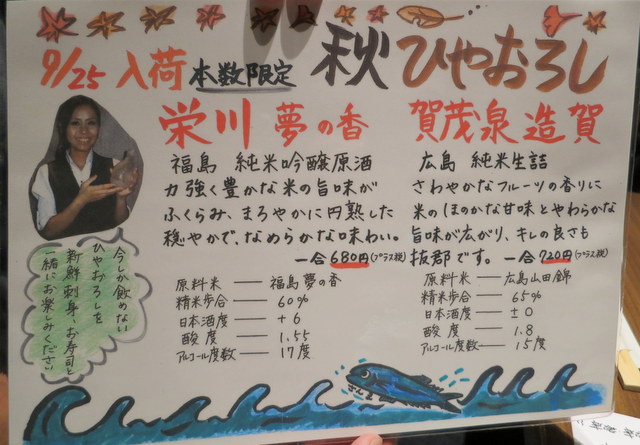 秋 ひやおろし
9/25 入荷 本数限定
栄川 夢の香
福島 純米吟醸原酒
力強く豊かな米の旨味が
ふくらみ、まろやかに円熟した
穏やかで、なめらかな味わい。
一合680円(プラス税)
原料米 ― 福島 夢の香
精米歩合 ― 60%
日本酒度 ― +6
酸度 ― 1.55
アルコール度数 ― 17度
賀茂泉 造賀
広島 純米生詰
さわやかなフルーツの香りに
米のほのかな甘味とやわらかな
旨味が広がり、キレの良さも
抜群です。 一合720円(プラス税)
原料米 ― 広島山田錦
精米歩合 ― 65%
日本酒度 ― ±0
酸度 ― 1.8
アルコール度数 ― 15度
今しか飲めない
ひやおろしを
新鮮刺身、お寿司と
一緒にお楽しみください
さんま